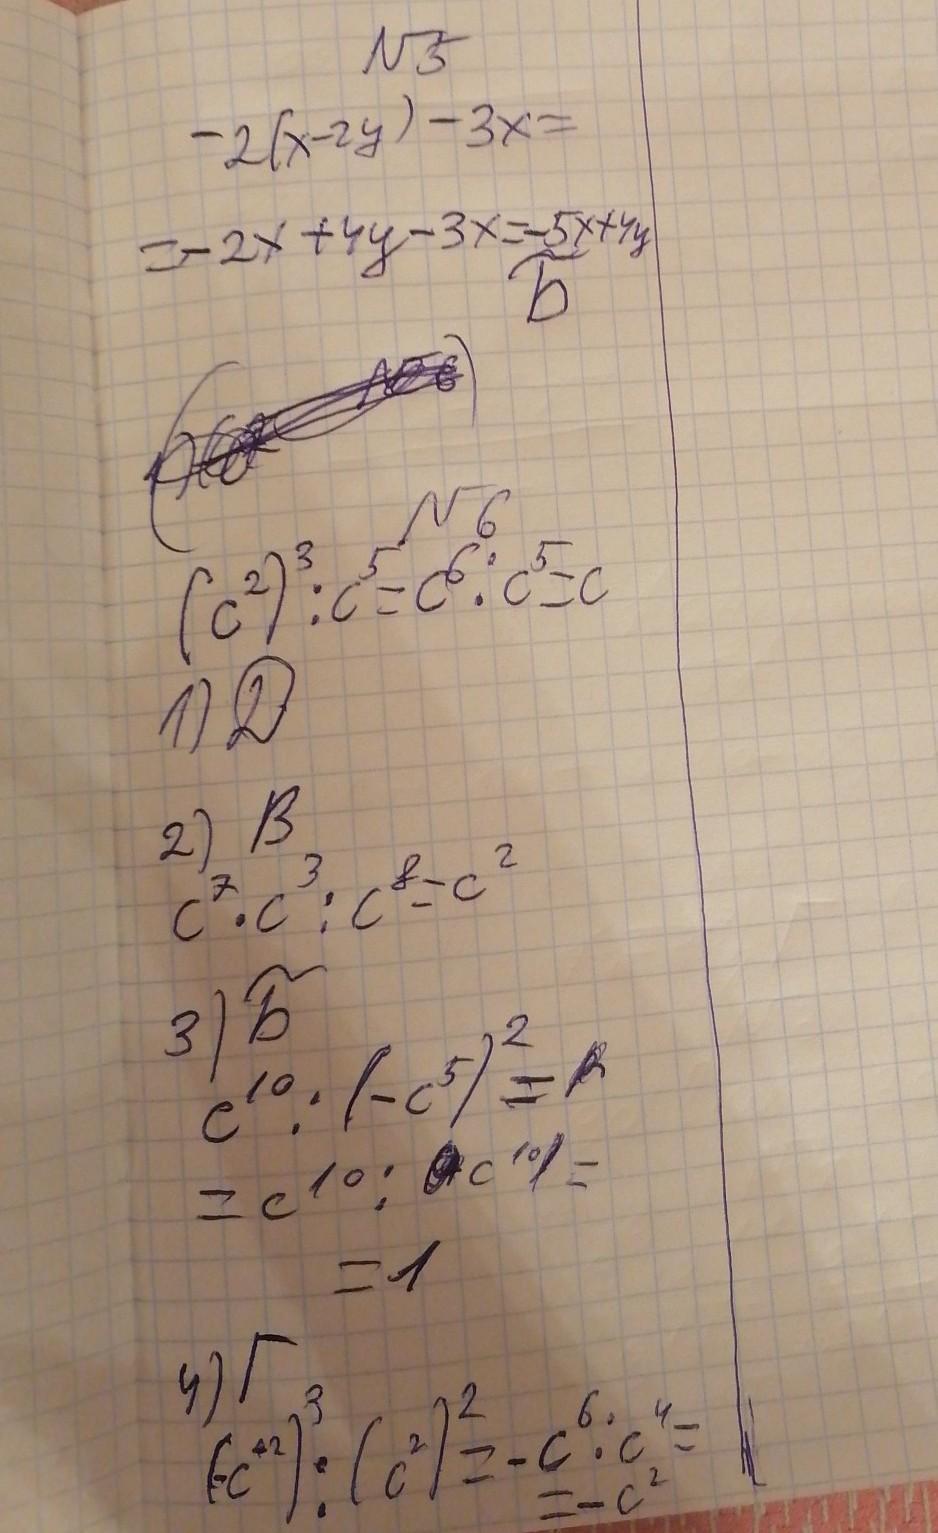 №5
-2(x-2y)-3x=
=-2x+4y-3x=-5x+4y
Б
№6
(c²)³:c⁵=c⁶:c⁵=c
1) Д
2) В
c⁷·c³:c⁸=c²
3) Б
c¹⁰:(-c⁵)²=
=c¹⁰:c¹⁰=
=1
4) Г
(-c²)³:(c²)²=-c⁶:c⁴=
=-c²